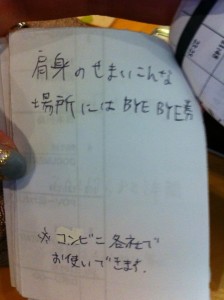 肩身のせまいこんな
場所にはBYE BYE券
※コンビニ各社で
お使いできます.